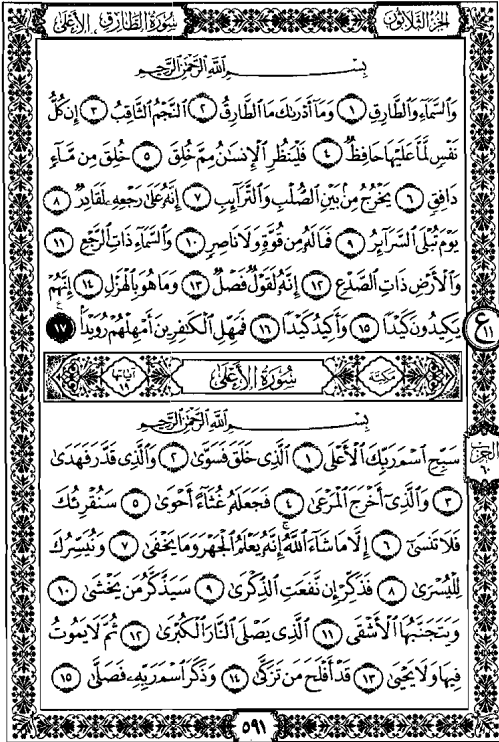 الجزء الثلاثون
سورة الطارق، الأعلى
بِسْمِ ٱللَّهِ ٱلرَّحْمَٰنِ ٱلرَّحِيمِ
وَٱلسَّمَآءِ وَٱلطَّارِقِ ١ وَمَآ أَدْرَىٰكَ مَا ٱلطَّارِقُ ٢ ٱلنَّجْمُ ٱلثَّاقِبُ ٣ إِن كُلُّ
نَفْسٍ لَّمَّا عَلَيْهَا حَافِظٌ ٤ فَلْيَنظُرِ ٱلْإِنسَٰنُ مِمَّ خُلِقَ ٥ خُلِقَ مِن مَّآءٍ
دَافِقٍ ٦ يَخْرُجُ مِنۢ بَيْنِ ٱلصُّلْبِ وَٱلتَّرَآئِبِ ٧ إِنَّهُۥ عَلَىٰ رَجْعِهِۦ لَقَادِرٌ ٨
يَوْمَ تُبْلَى ٱلسَّرَآئِرُ ٩ فَمَا لَهُۥ مِن قُوَّةٍ وَلَا نَاصِرٍ ١٠ وَٱلسَّمَآءِ ذَاتِ ٱلرَّجْعِ ١١
وَٱلْأَرْضِ ذَاتِ ٱلصَّدْعِ ١٢ إِنَّهُۥ لَقَوْلٌ فَصْلٌ ١٣ وَمَا هُوَ بِٱلْهَزْلِ ١٤ إِنَّهُمْ
يَكِيدُونَ كَيْدًا ١٥ وَأَكِيدُ كَيْدًا ١٦ فَمَهِّلِ ٱلْكَٰفِرِينَ أَمْهِلْهُمْ رُوَيْدًۢا ١٧
ع ١١
مكية
سُورَةُ ٱلْأَعْلَىٰ
آياتها ١٩
بِسْمِ ٱللَّهِ ٱلرَّحْمَٰنِ ٱلرَّحِيمِ
سَبِّحِ ٱسْمَ رَبِّكَ ٱلْأَعْلَى ١ ٱلَّذِى خَلَقَ فَسَوَّىٰ ٢ وَٱلَّذِى قَدَّرَ فَهَدَىٰ
الحزب ٦٠
٣ وَٱلَّذِىٓ أَخْرَجَ ٱلْمَرْعَىٰ ٤ فَجَعَلَهُۥ غُثَآءً أَحْوَىٰ ٥ سَنُقْرِئُكَ
فَلَا تَنسَىٰٓ ٦ إِلَّا مَا شَآءَ ٱللَّهُ ۚ إِنَّهُۥ يَعْلَمُ ٱلْجَهْرَ وَمَا يَخْفَىٰ ٧ وَنُيَسِّرُكَ
لِلْيُسْرَىٰ ٨ فَذَكِّرْ إِن نَّفَعَتِ ٱلذِّكْرَىٰ ٩ سَيَذَّكَّرُ مَن يَخْشَىٰ ١٠
وَيَتَجَنَّبُهَا ٱلْأَشْقَى ١١ ٱلَّذِى يَصْلَى ٱلنَّارَ ٱلْكُبْرَىٰ ١٢ ثُمَّ لَا يَمُوتُ
فِيهَا وَلَا يَحْيَىٰ ١٣ قَدْ أَفْلَحَ مَن تَزَكَّىٰ ١٤ وَذَكَرَ ٱسْمَ رَبِّهِۦ فَصَلَّىٰ ١٥
٥٩١